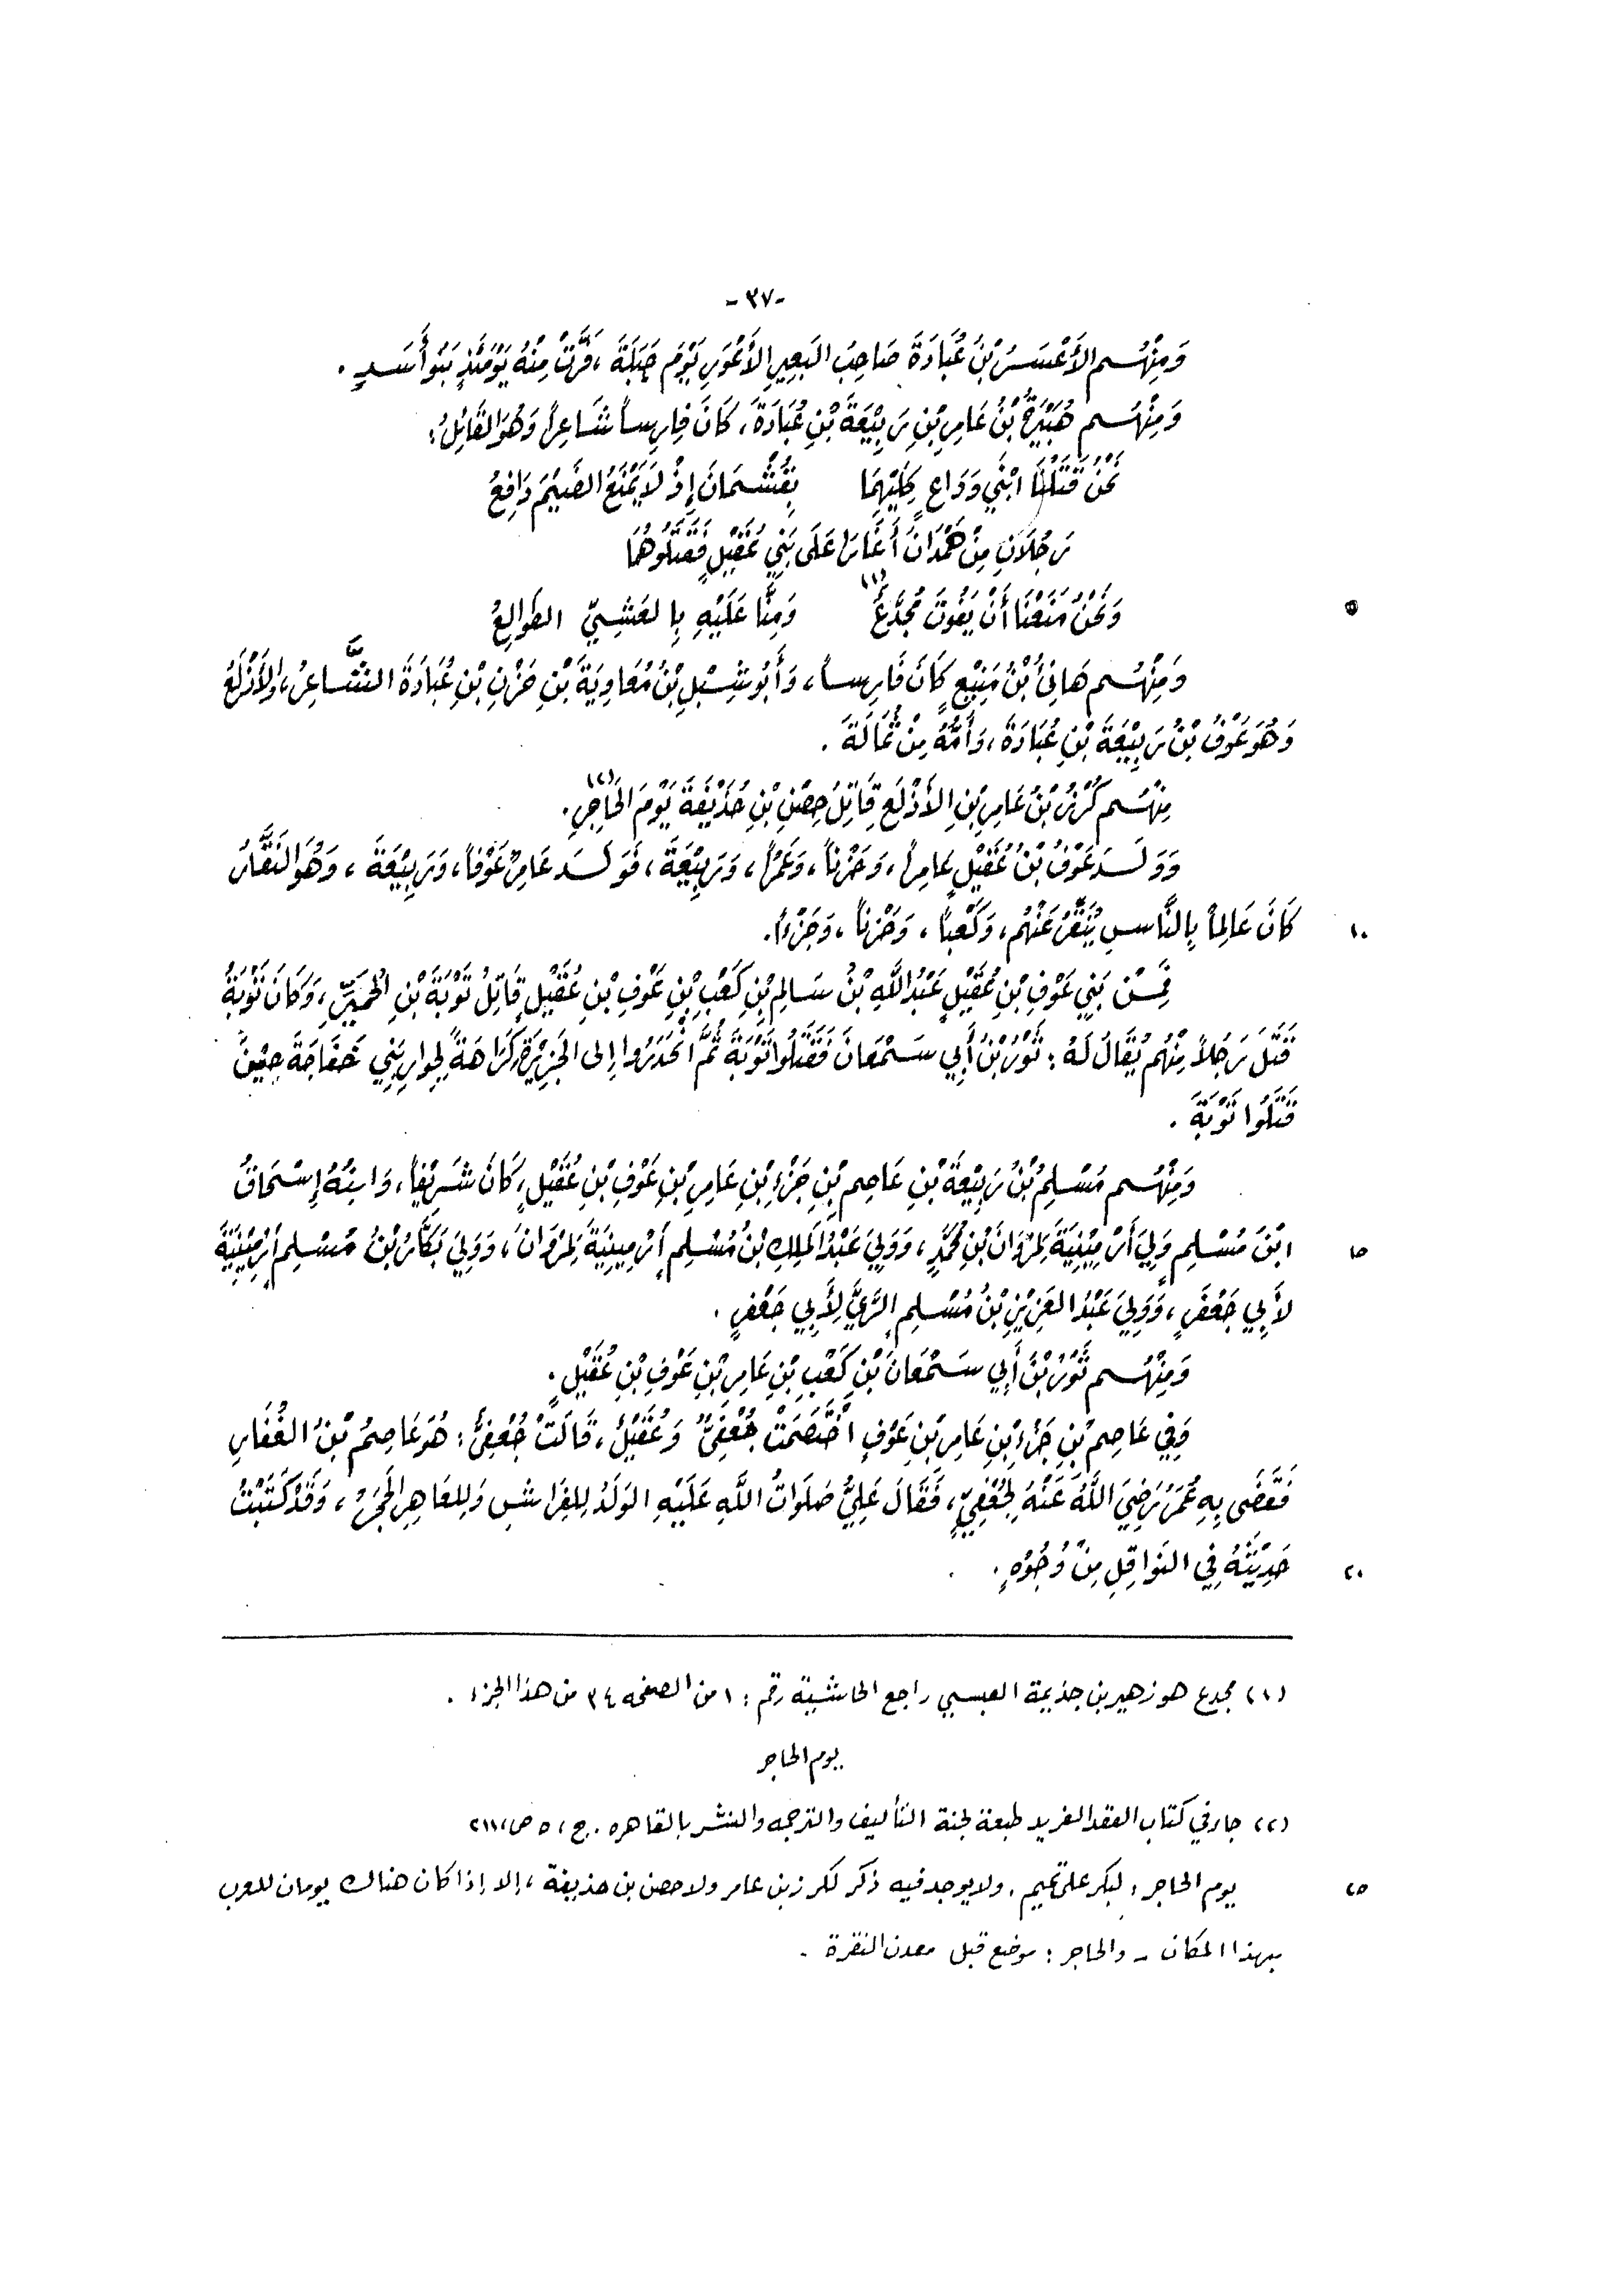 -٣٧-
وَمِنْهُم الأَعْسَرُ بْنُ عُبَادَةَ صَاحِبُ البَعِيرِ الأَعْوَرِ يَوْمَ جَبَلَةَ، فَرَّتْ مِنْهُ يَوْمَئِذٍ بَنُو أَسَدٍ.
وَمِنْهُم هُبَيْرَةُ بْنُ عَامِرِ بْنِ رَبِيْعَةَ بْنِ عُبَادَةَ، كَانَ فَارِساً شَاعِراً وَهُوَ القَائِلُ:
نَحْنُ قَتَلْنَا ابْنَي وَدَاعٍ كِلَيْهِمَا بِقُشْمَانَ إِذْ لَا يَمْنَعُ الضَّيْمَ دَافِعُ
رَجُلَانِ مِنْ هَمْدَانَ أَغَارَا عَلَى بَنِي عُقَيْلٍ فَقَتَلُوهُمَا
٥ وَنَحْنُ مَنَعْنَا أَنْ يَفُوتَ مُجَدَّعٌ (١) وَمِنَّا عَلَيْهِ بِالعَشِيِّ الطَوَالِعُ
وَمِنْهُم هَانِئُ بْنُ مَنِيْعٍ كَانَ فَارِساً، وَأَبُو شِبْلِ بْنُ مُعَاوِيَةَ بْنِ حَزْنِ بْنِ عُبَادَةَ الشَّاعِرُ، وَالأَذْلَعُ
وَهُوَ عَوْفُ بْنُ رَبِيْعَةَ بْنِ عُبَادَةَ، وَأُمُّهُ مِنْ ثُمَالَةَ.
مِنْهُم كُرْزُ بْنُ عَامِرِ بْنِ الأَذْلَعِ قَاتِلُ حِصْنِ بْنِ حُذَيْفَةَ يَوْمَ الحَاجِرِ (٢).
وَوَلَدَ عَوْفُ بْنُ عُقَيْلٍ عَامِراً، وَحَزْناً، وَعَمْراً، وَرَبِيْعَةَ، فَوَلَدَ عَامِرٌ عَوْفاً، وَرَبِيْعَةَ، وَهُوَ النَقَّارُ
١٠ كَانَ عَالِماً بِالنَّاسِ يُنَقِّرُ عَنْهُم، وَكَعْباً، وَحَزْناً، وَجَزْءاً.
فَمِنْ بَنِي عَوْفِ بْنِ عُقَيْلٍ عَبْدُ اللَّهِ بْنُ سَالِمِ بْنِ كَعْبِ بْنِ عَوْفِ بْنِ عُقَيْلٍ قَاتِلُ تَوْبَةَ بْنِ الحُمَيِّرِ، وَكَانَ تَوْبَةُ
قَتَلَ رَجُلاً مِنْهُم يُقَالَ لَهُ: ثَوْرُ بْنُ أَبِي سَمْعَانَ فَقَتَلُوا تَوْبَةَ ثُمَّ انْحَدَرُوا إِلى الجَزِيْرَةِ كَرَاهَةً لِجِوارِ بَنِي خَفَاجَةَ حِيْنَ
قَتَلُوا تَوْبَةَ.
وَمِنْهُم مُسْلِمُ بْنُ رَبِيْعَةَ بْنِ عَاصِمِ بْنِ جَزْءِ بْنِ عَامِرِ بْنِ عَوْفِ بْنِ عُقَيْلٍ، كَانَ شَرِيْفاً، وَابنُهُ إِسْحَاقُ
١٥ ابْنُ مُسْلِمٍ وَلِيَ أَرْمِيْنِيَةَ لِمَرْوَانَ بْنِ مُحَمَّدٍ، وَوَلِيَ عَبْدُ المَلِكِ بْنُ مُسْلِمٍ أَرْمِينِيَةَ لِمَرْوَانَ، وَوَلِيَ بَكَّارُ بْنُ مُسْلِمٍ أَرْمِيْنِيَةَ
لأَبِي جَعْفَرٍ، وَوَلِيَ عَبْدُ العَزِيْزِ بْنُ مُسْلِمٍ الرَّيَّ لِأَبِي جَعْفَرٍ.
وَمِنْهُم ثَوْرُ بْنُ أَبِي سَمْعَانَ بْنِ كَعْبِ بْنِ عَامِرِ بْنِ عَوْفِ بْنِ عُقَيْلٍ.
وَفِي عَاصِمِ بْنِ جَزْءِ بْنِ عَامِرِ بْنِ عَوْفٍ اخْتَصَمَتْ جُعْفِيُّ وَعُقَيْلُ، قَالَتْ جُعْفِيُّ: هُوَ عَاصِمُ بْنُ الغُفَارِ
فَقَضَى بِهِ عُمَرُ رَضِيَ اللَّهُ عَنْهُ لِجُعْفِيٍّ، فَقَالَ عَلِيٌّ صَلَوَاتُ اللَّهِ عَلَيْهِ الوَلَدُ لِلفِرَاشِ وَلِلعَاهِرِ الحَجَرُ، وَقَدْ كَتَبْتُ
٢٠ حَدِيْثَهُ فِي النَوَاقِلِ مِنْ وُجُوْهٍ.
(١) مجدع هو زهير بن جذيمة العبسي راجع الحاشية رقم: ١ من الصفحه ٣٤ من هذا الجزء.
يوم الحاجر
(٢) جاء في كتاب العقد الفريد طبعة لجنة التأليف والترجمه والنشر بالقاهره. ج، ٥ ص، ٢١١
٢٥ يوم الحاجر: لبكر على تميم. ولا يوجد فيه ذكر لكرز بن عامر ولا حصن بن حذيفة، إلا إذا كان هناك يومان للعرب
بهذا المكان - والحاجر: موضع قبل معدن النقرة.